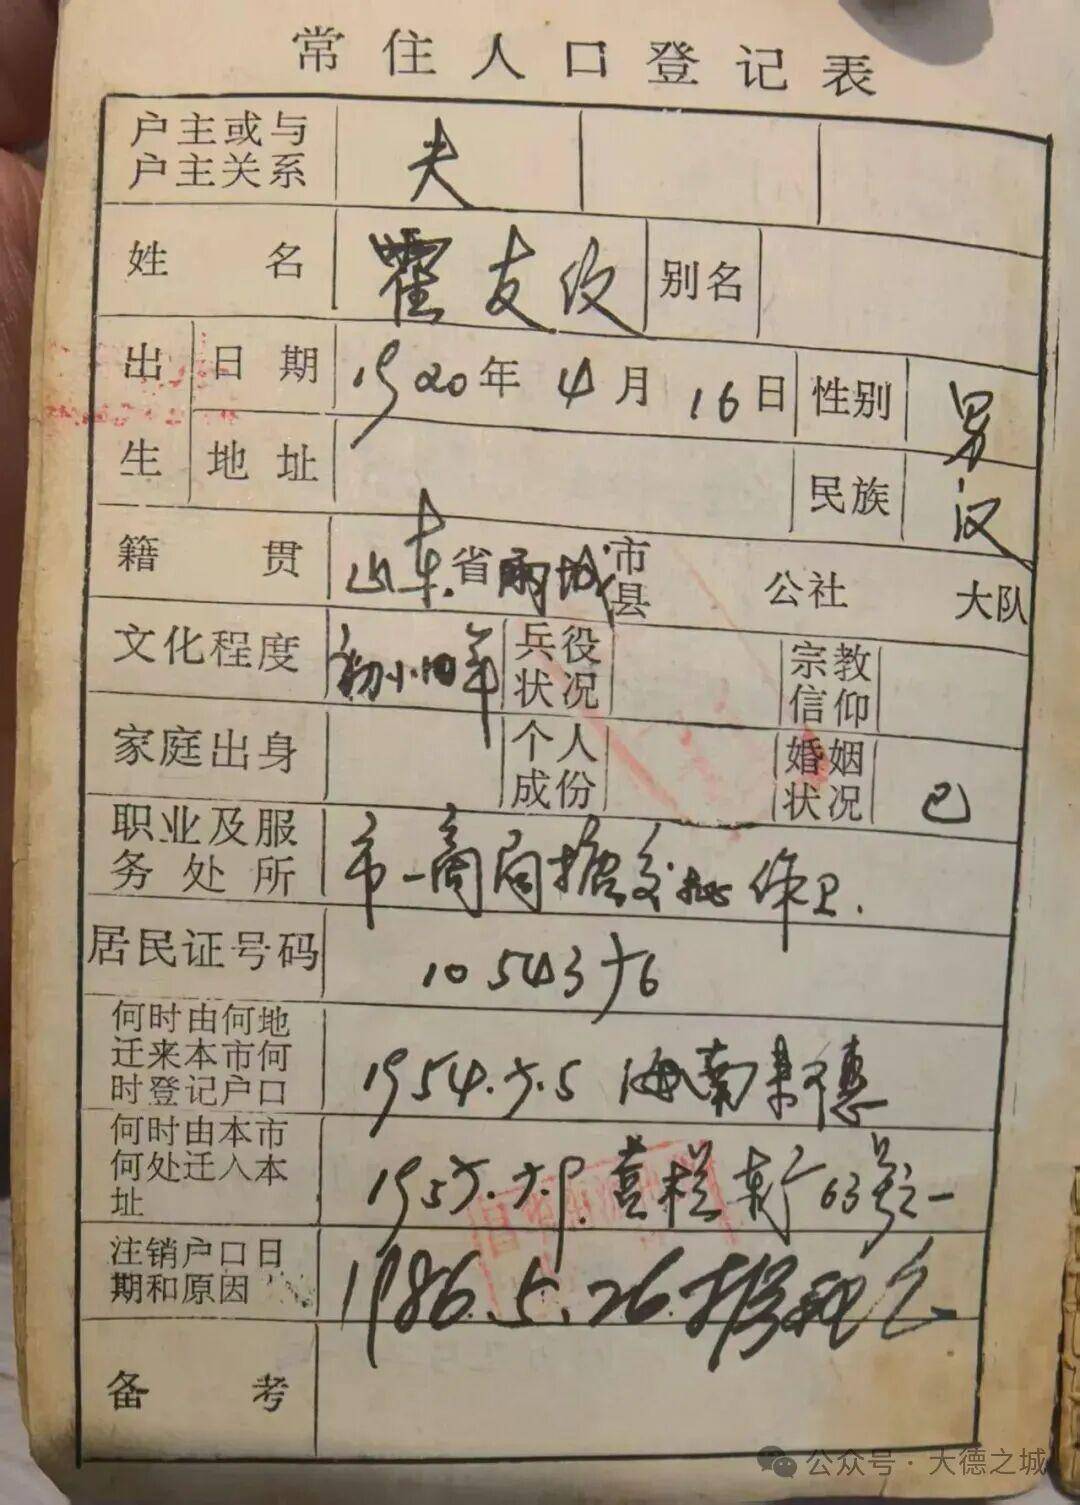 常住人口登记表
户主或与
户主关系 夫
姓名 霍友仪 别名
出生 日期 1920年4月16日 性别 男
地址 民族 汉
籍贯 山东省禹城市县 公社 大队
文化程度 初小四年 兵役状况 宗教信仰
家庭出身 个人成份 婚姻状况 已
职业及服
务处所 市一商局
居民证号码
何时由何地
迁来本市何
时登记户口 1954.7.5 海南
何时由本市
何处迁入本
址 63号之一
注销户口日
期和原因 1986.5.26.
备考
公众号·大德之城